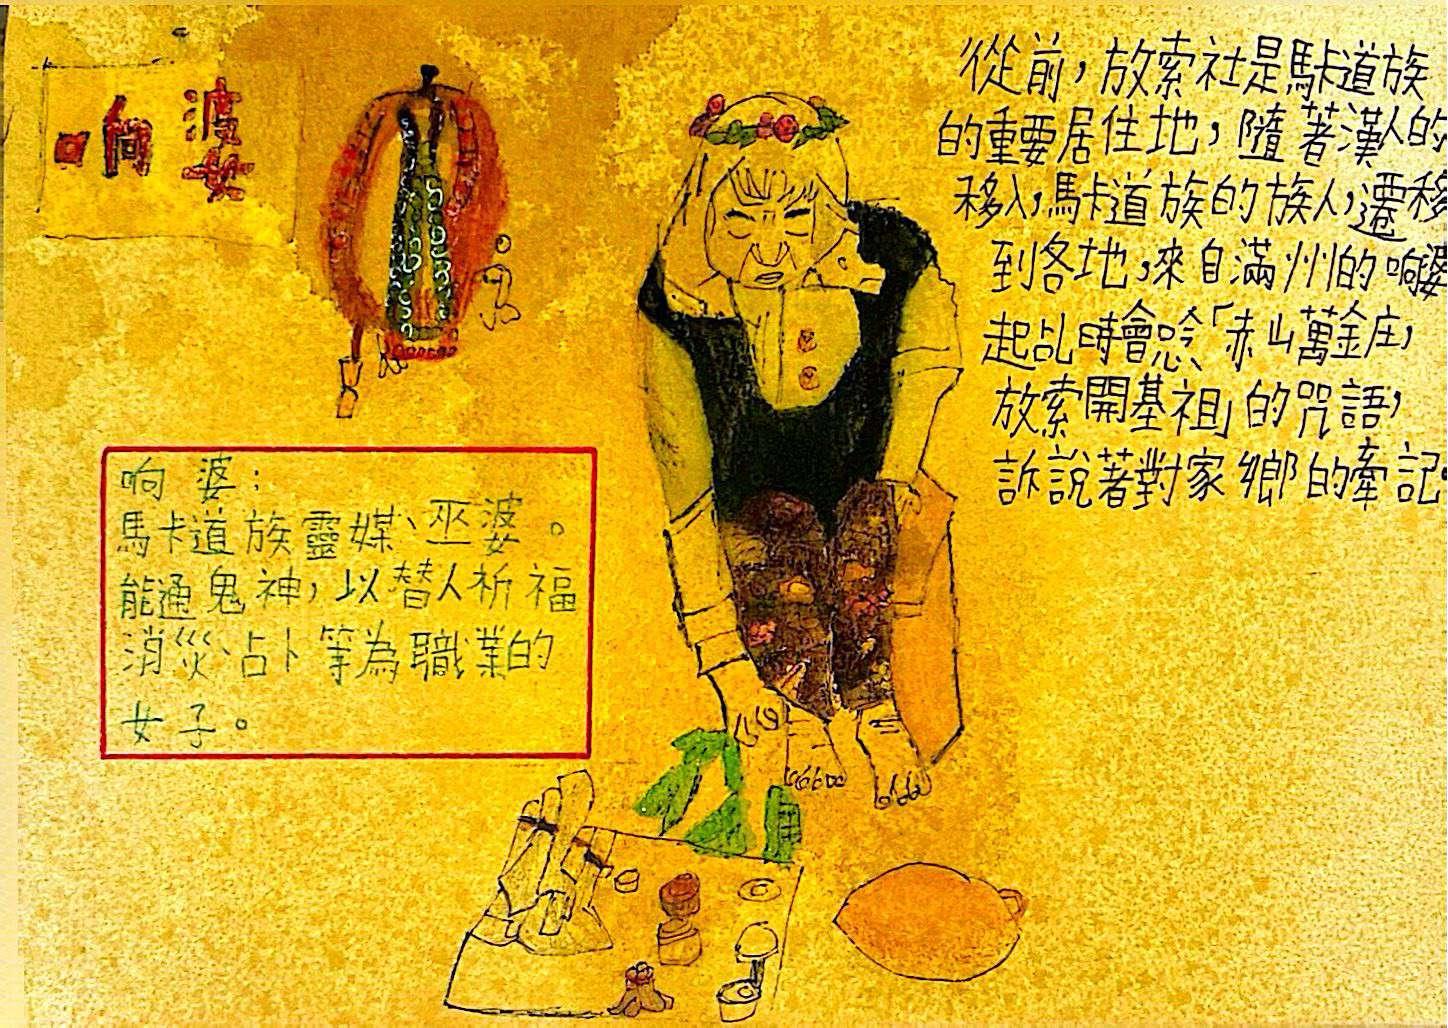 响婆
從前，放索社是馬卡道族
的重要居住地，隨著漢人的
移入，馬卡道族的族人，遷移
到各地，來自滿州的响婆
起乩時會唸「赤山萬金庄，
放索開基祖」的咒語，
訴說著對家鄉的牽記。
响婆：
馬卡道族靈媒、巫婆。
能通鬼神，以替人祈福
消災、占卜等為職業的
女子。